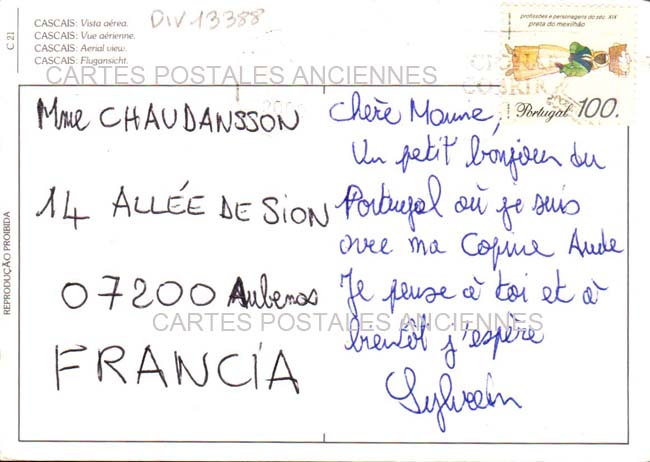 DIV13388
CASCAIS: Vista aérea.
CASCAIS: Vue aérienne.
CASCAIS: Aerial view.
CASCAIS: Flugansicht.
C 21
profissões e personagens do séc. XIX
preta do mexilhão
Portugal 100.
CARTES POSTALES ANCIENNES
Mme CHAUDANSSON
14 ALLÉE DE SION
07200 Aubenas
FRANCIA
Chère Moune,
Un petit bonjour du
Portugal où je suis
avec ma Copine Aude
Je pense à toi et à
bientôt j'espère
Sylvain
CARTES POSTALES ANCIENNES
REPRODUÇÃO PROIBIDA